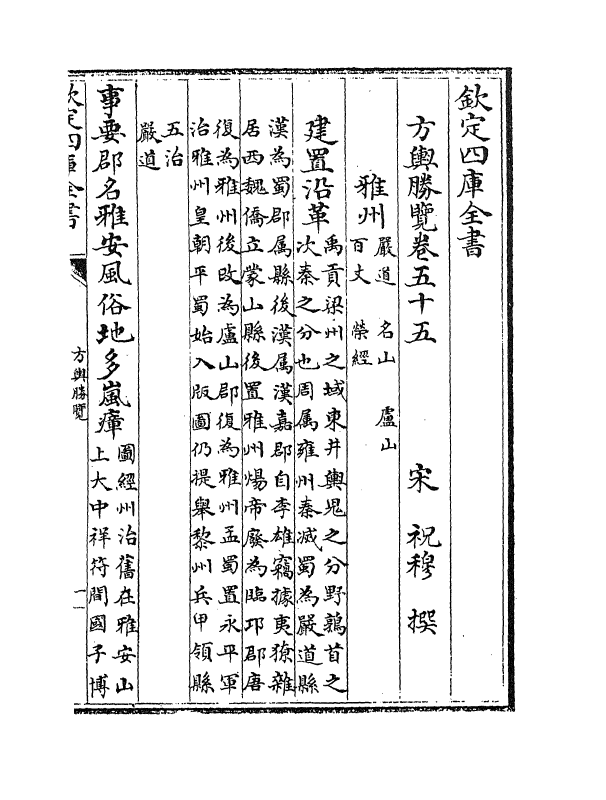 欽定四庫全書
方輿勝覽卷五十五 宋 祝穆 撰
雅州 嚴道 名山 盧山
百丈 榮經
建置沿革 禹貢梁州之域東井輿鬼之分野鶉首之
次秦之分也周属雍州秦滅蜀為嚴道縣
漢為蜀郡属縣後漢属漢嘉郡自李雄竊據夷獠雜
居西魏僑立蒙山縣後置雅州煬帝廢為臨邛郡唐
復為雅州後改為盧山郡復為雅州孟蜀置永平軍
治雅州皇朝平蜀始入版圖仍提舉黎州兵甲領縣
五治
嚴道
事要郡名雅安風俗地多嵐瘴 圖經州治舊在雅安山
上大中祥符間國子博
欽定四庫全書
方輿勝覽
一